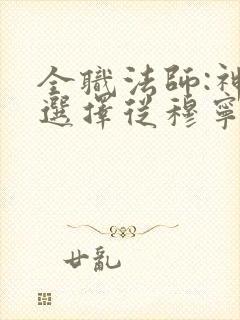 全職法師:神
選擇從穆寧
廿亂